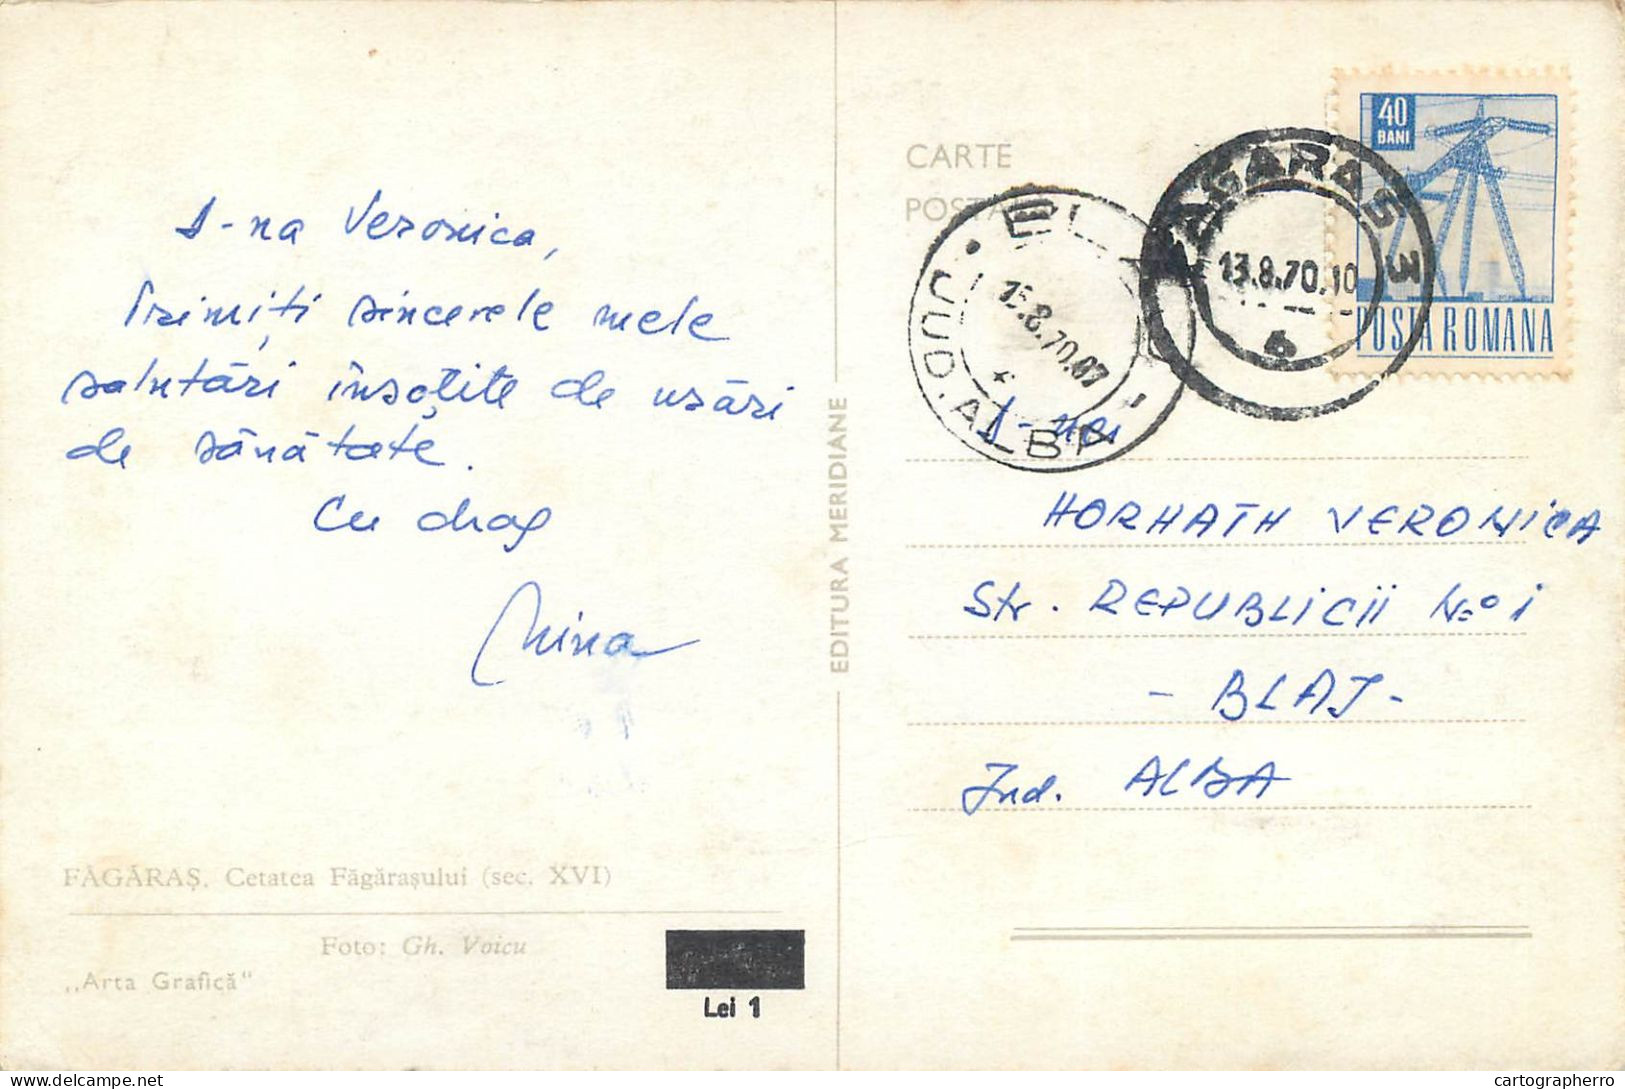 D-na Veronica,
Primiți sincerele mele
salutări însoțite de urări
de sănătate.
Cu drag
Nina
FĂGĂRAȘ. Cetatea Făgărașului (sec. XVI)
Foto: Gh. Voicu
„Arta Grafică"
Lei 1
EDITURA MERIDIANE
CARTE
POȘTALĂ
40
BANI
POSTA ROMANA
FAGARAS 3
13.8.70.10
6
BLAJ
15.8.70.07
JUD. ALBA
D-nei
HORHATH VERONICA
Str. REPUBLICII No 1
- BLAJ -
Jud. ALBA
cartographerro